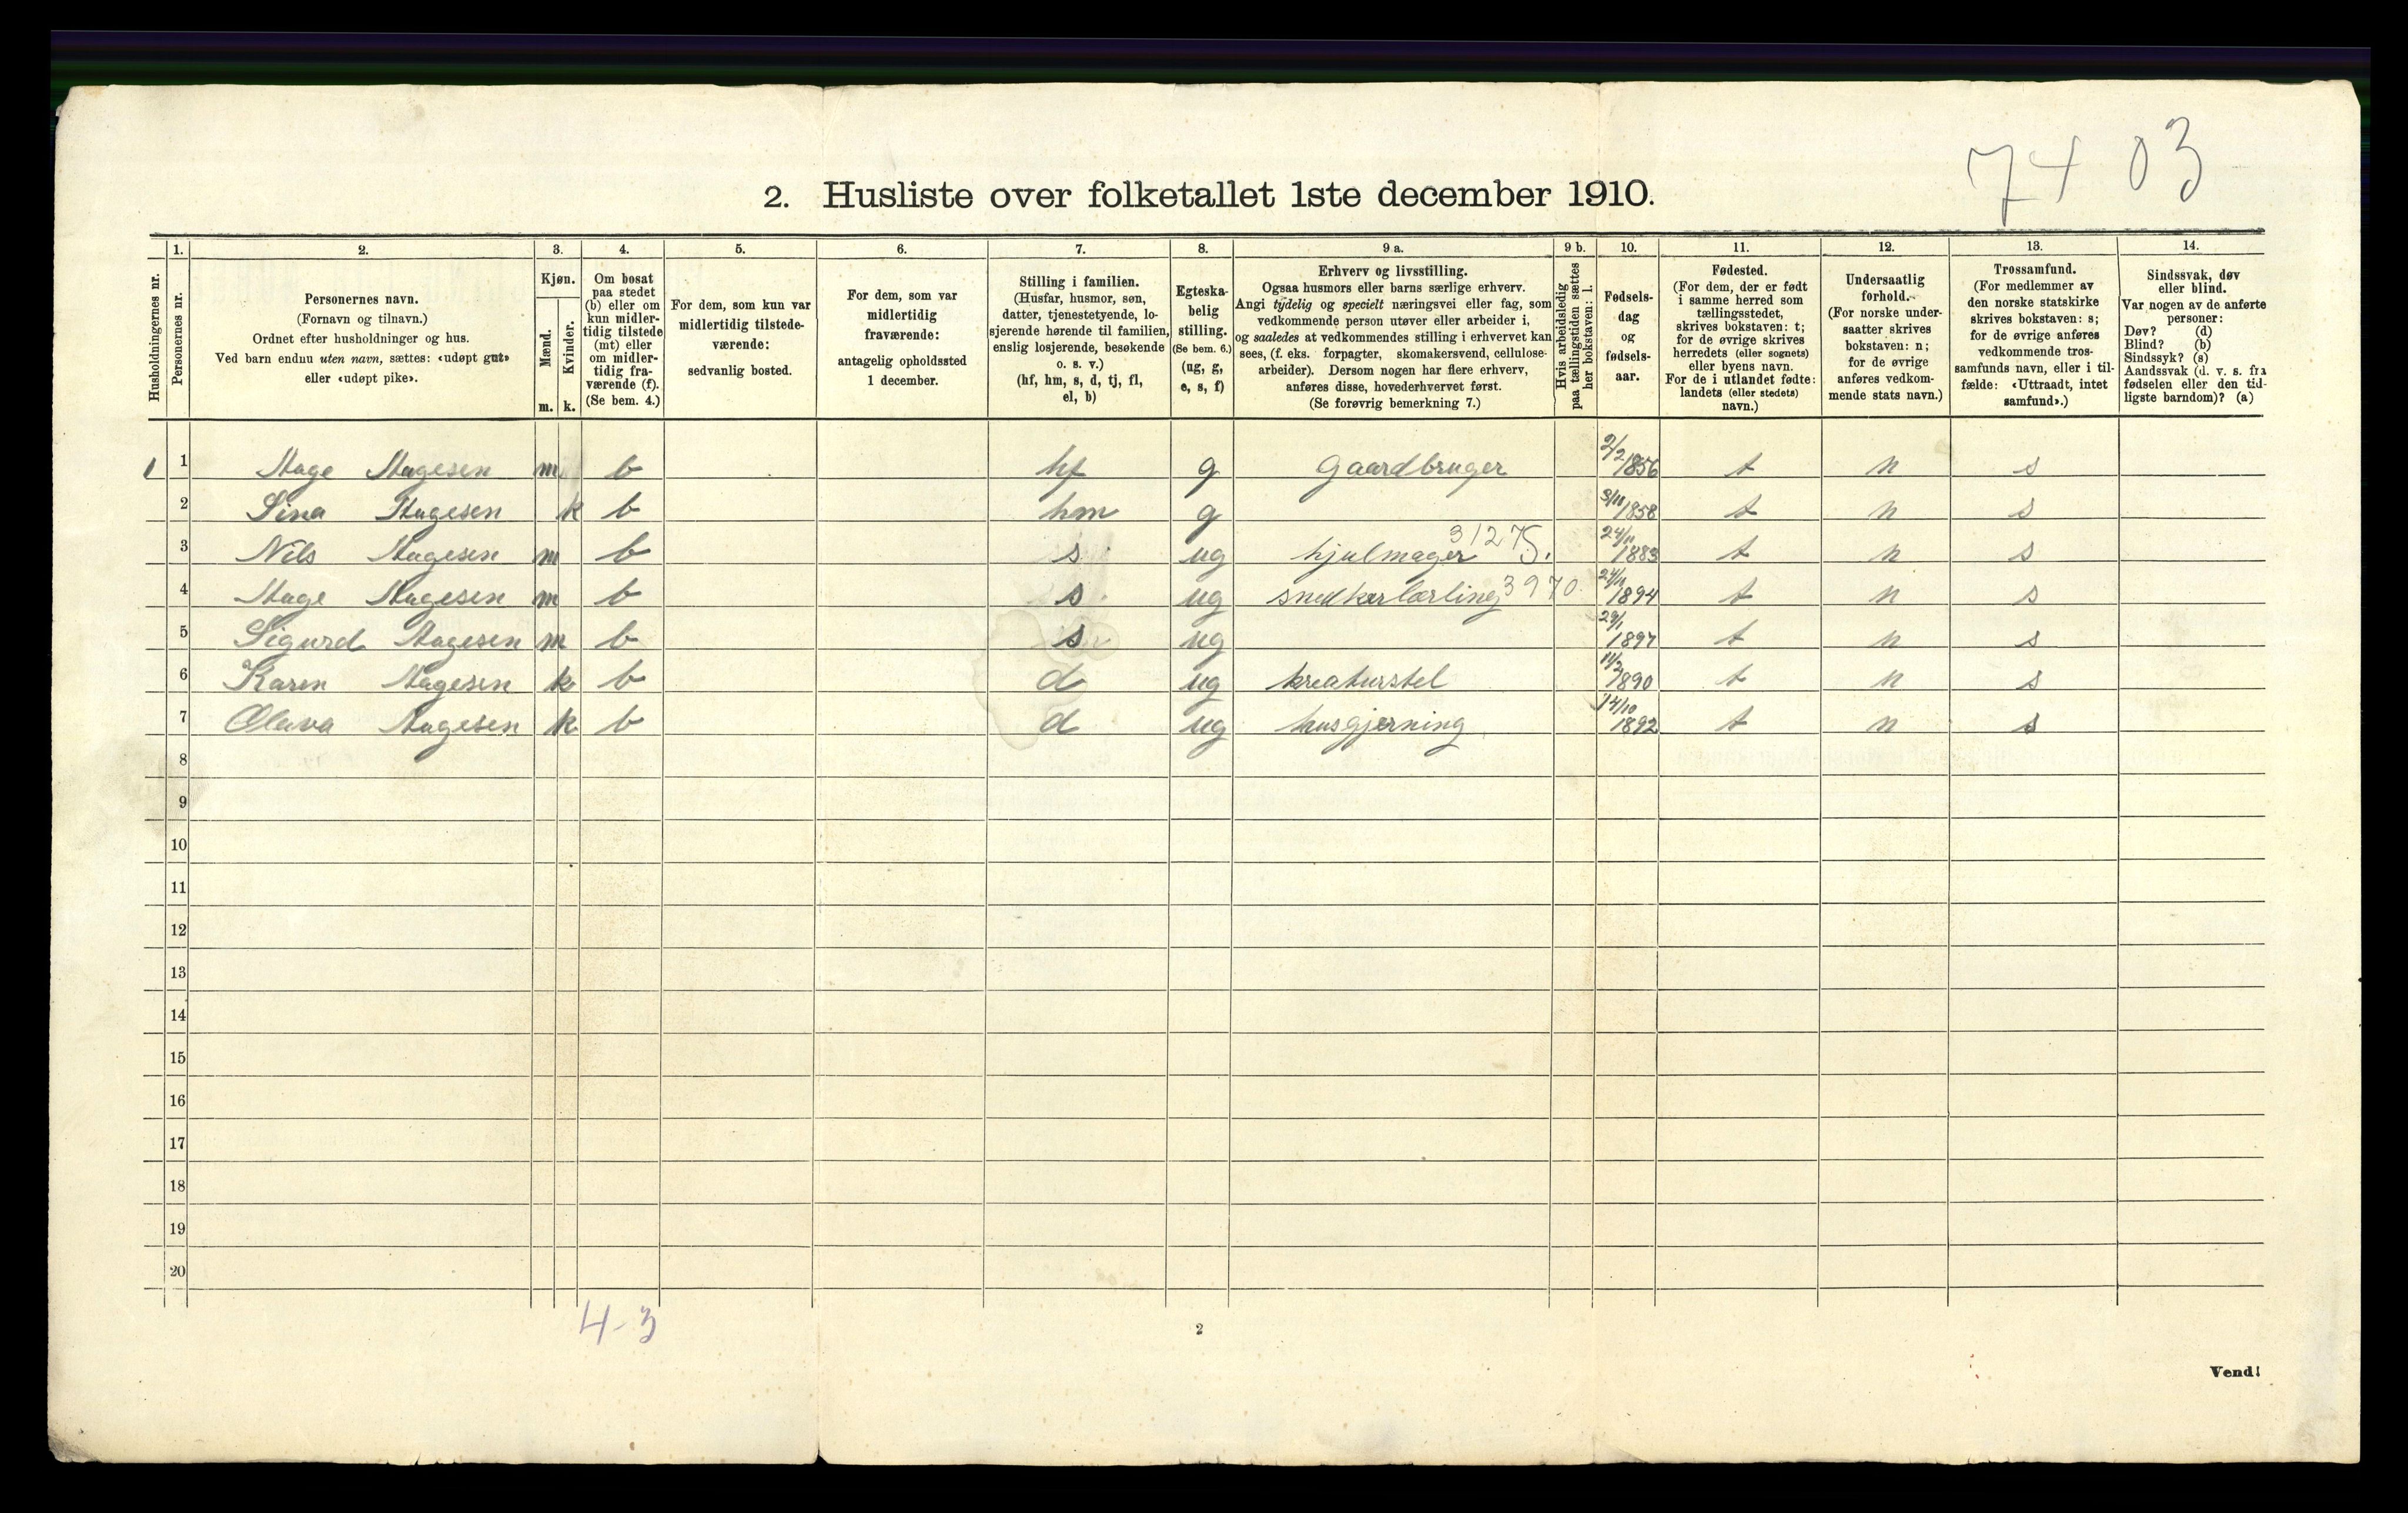 7403
2. Husliste over folketallet 1ste december 1910.
Husholdningernes nr.
1.
Personernes nr.
2.
Personernes navn.
(Fornavn og tilnavn.)
Ordnet efter husholdninger og hus.
Ved barn endnu uten navn, sættes: «udøpt gut»
eller «udøpt pike».
3.
Kjøn.
Mænd.
Kvinder.
m. k.
4.
Om bosat
paa stedet
(b) eller om
kun midler-
tidig tilstede
(mt) eller
om midler-
tidig fra-
værende (f).
(Se bem. 4.)
5.
For dem, som kun var
midlertidig tilstede-
værende:
sedvanlig bosted.
6.
For dem, som var
midlertidig
fraværende:
antagelig opholdssted
1 december.
7.
Stilling i familien.
(Husfar, husmor, søn,
datter, tjenestetyende, lo-
sjerende hørende til familien,
enslig losjerende, besøkende
o. s. v.)
(hf, hm, s, d, tj, fl,
el, b)
8.
Egteska-
belig
stilling.
(Se bem. 6.)
(ug, g,
e, s, f)
9 a.
Erhverv og livsstilling.
Ogsaa husmors eller barns særlige erhverv.
Angi tydelig og specielt næringsvei eller fag, som
vedkommende person utøver eller arbeider i,
og saaledes at vedkommendes stilling i erhvervet kan
sees, (f. eks. forpagter, skomakersvend, cellulose-
arbeider). Dersom nogen har flere erhverv,
anføres disse, hovederhvervet først.
(Se forøvrig bemerkning 7.)
9 b.
Hvis arbeidsledig
paa tællingstiden sættes
her bokstaven: l.
10.
Fødsels-
dag
og
fødsels-
aar.
11.
Fødested.
(For dem, der er født
i samme herred som
tællingsstedet,
skrives bokstaven: t;
for de øvrige skrives
herredets (eller sognets)
eller byens navn.
For de i utlandet fødte:
landets (eller stedets)
navn.)
12.
Undersaatlig
forhold.
(For norske under-
saatter skrives
bokstaven: n;
for de øvrige
anføres vedkom-
mende stats navn.)
13.
Trossamfund.
(For medlemmer av
den norske statskirke
skrives bokstaven: s;
for de øvrige anføres
vedkommende tros-
samfunds navn, eller i til-
fælde: «Uttraadt, intet
samfund».)
14.
Sindssvak, døv
eller blind.
Var nogen av de anførte
personer:
Døv? (d)
Blind? (b)
Sindssyk? (s)
Aandssvak (d. v. s. fra
fødselen eller den tid-
ligste barndom)? (a)
1 1 Aage Aagesen m b hf g Gaardbruger 2/2 1856 t n s
2 Sina Aagesen k b hm g 3/11 1858 t n s
3 Nils Aagesen m b s ug hjulmager 31275. 24/11 1883 t n s
4 Aage Aagesen m b s ug snedkerlærling 3970 24/11 1894 t n s
5 Sigurd Aagesen m b s ug 29/1 1897 t n s
6 Karen Aagesen k b d ug kreaturstel 11/2 1890 t n s
7 Olava Aagesen k b d ug husgjerning 14/10 1892 t n s
8
9
10
11
12
13
14
15
16
17
18
19
20
4-3
2
Vend!